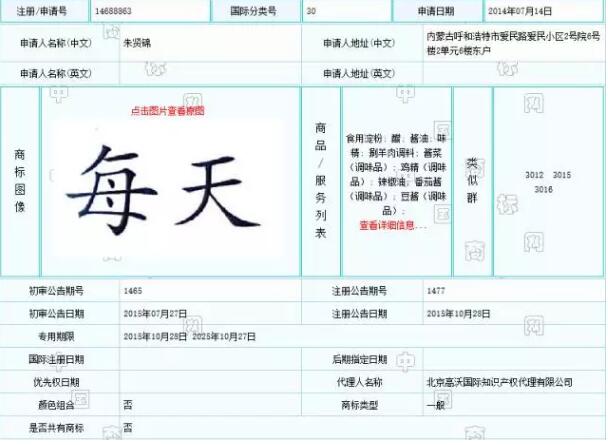 注册/申请号 14688863 国际分类号 30 申请日期 2014年07月14日
申请人名称(中文) 朱贤锦 申请人地址(中文) 内蒙古呼和浩特市爱民路爱民小区2号院6号
楼2单元6楼东户
申请人名称(英文) 申请人地址(英文)
商标图像
点击图片查看原图
每天
商品/服务列表
食用淀粉；醋；酱油；味
精；涮羊肉调料；酱菜
（调味品）；鸡精（调味
品）；辣椒油；番茄酱
（调味品）；豆酱（调味
品）；
查看详细信息...
类似群
3012 3015
3016
初审公告期号 1465 注册公告期号 1477
初审公告日期 2015年07月27日 注册公告日期 2015年10月28日
专用期限 2015年10月28日 2025年10月27日
国际注册日期 后期指定日期
优先权日期 代理人名称 北京高沃国际知识产权代理有限公司
颜色组合 否 商标类型 一般
是否共有商标 否